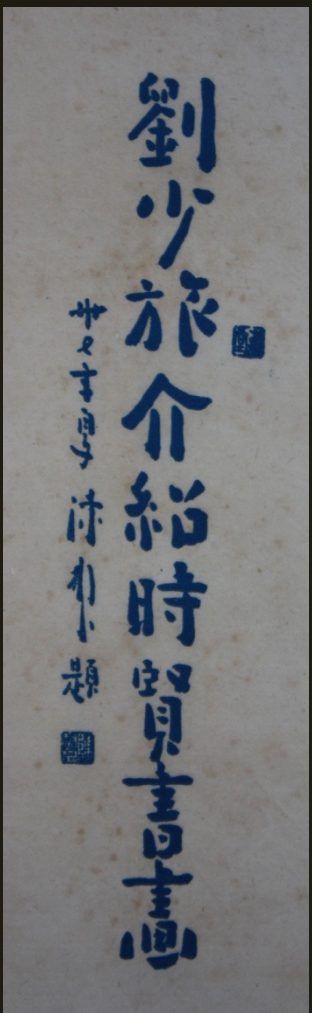 劉少旅介紹時賢書畫
卅七年夏 陳樹人題